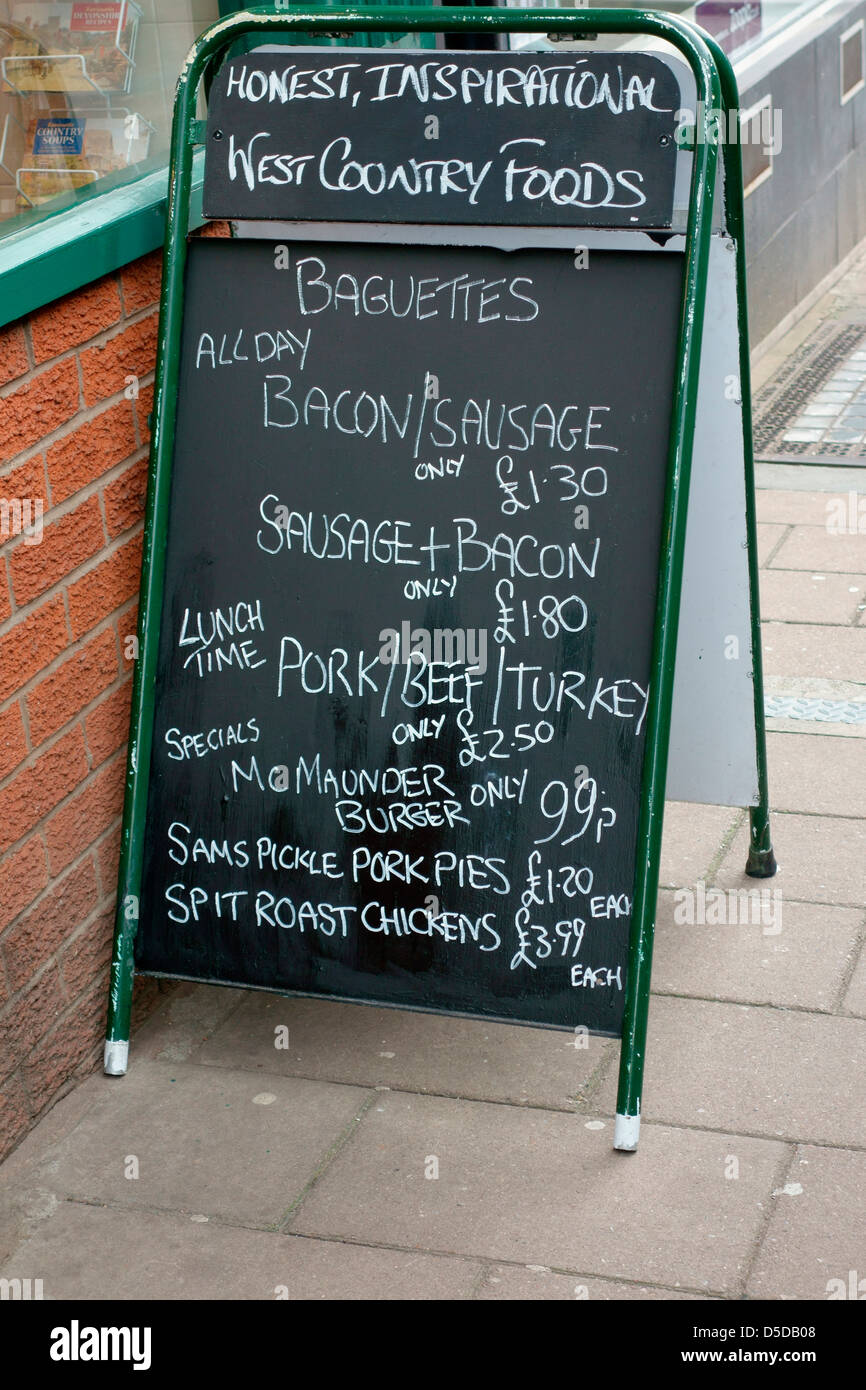 HONEST, INSPIRATIONAL
WEST COUNTRY FOODS
BAGUETTES
ALL DAY
BACON/SAUSAGE
ONLY £1.30
SAUSAGE+BACON
ONLY £1.80
LUNCH
TIME
PORK/BEEF/TURKEY
ONLY £2.50
SPECIALS
MCMAUNDER
BURGER
ONLY 99p
SAMS PICKLE PORK PIES £1.20
EACH
SPIT ROAST CHICKENS £3.99
EACH
COUNTRY
SOUPS
RECIPES
a alamy
alamy
Image ID: D5DB08
www.alamy.com